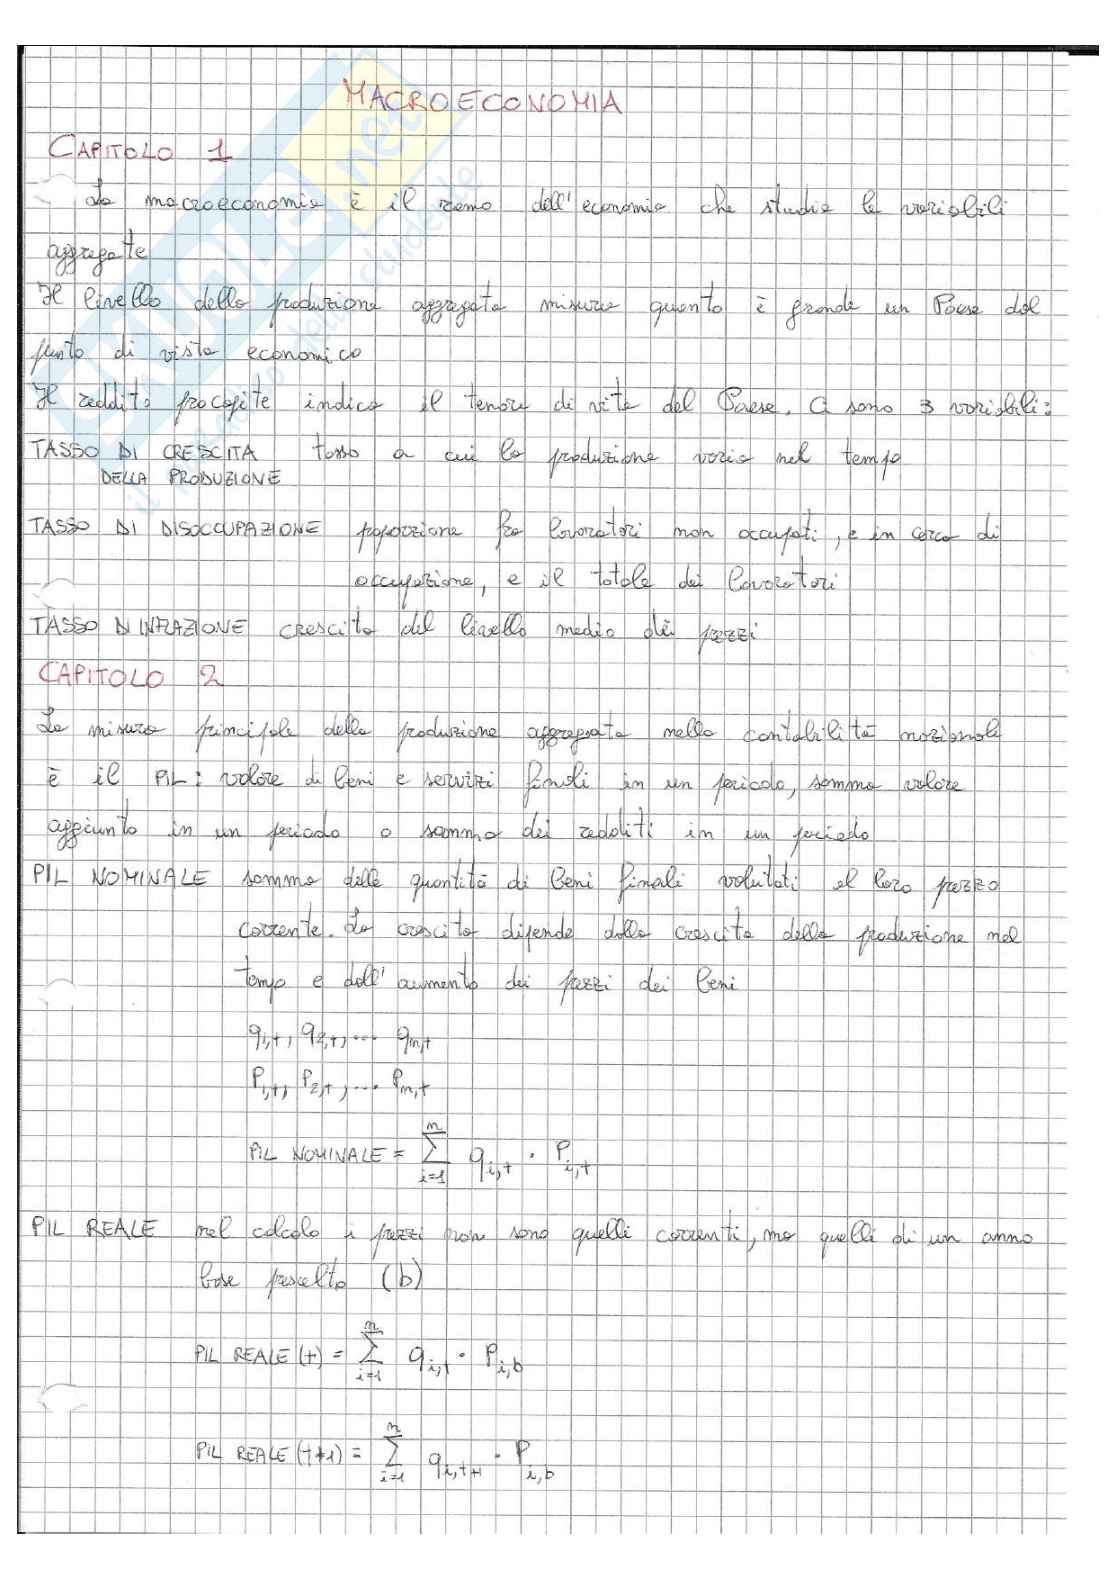 MACROECONOMIA
CAPITOLO 1
La macroeconomia è il ramo dell'economia che studia le variabili
aggregate
Il livello della produzione aggregata misura quanto è grande un Paese dal
punto di vista economico
Il reddito procapite indica il tenore di vita del Paese. Ci sono 3 variabili:
TASSO DI CRESCITA tasso a cui la produzione varia nel tempo
DELLA PRODUZIONE
TASSO DI DISOCCUPAZIONE proporzione fra lavoratori non occupati, e in cerca di
occupazione, e il totale dei lavoratori
TASSO DI INFLAZIONE crescita del livello medio dei prezzi
CAPITOLO 2
La misura principale della produzione aggregata nella contabilità nazionale
è il PIL: valore di beni e servizi finali in un periodo, somma valore
aggiunto in un periodo o somma dei redditi in un periodo
PIL NOMINALE somma delle quantità di beni finali valutati al loro prezzo
corrente. La crescita dipende dalla crescita della produzione nel
tempo e dall'aumento dei prezzi dei beni
q1,t, q2,t, ... qn,t
P1,t, P2,t, ... Pn,t
PIL NOMINALE = Σ(i=1, n) qi,t · Pi,t
PIL REALE nel calcolo i prezzi non sono quelli correnti, ma quelli di un anno
base prescelto (b)
PIL REALE (t) = Σ(i=1, n) qi,t · Pi,b
PIL REALE (t+1) = Σ(i=1, n) qi,t+1 · Pi,b